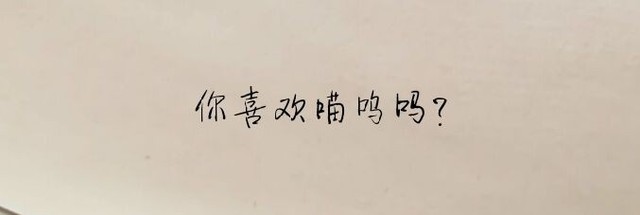 你喜欢喵呜吗？